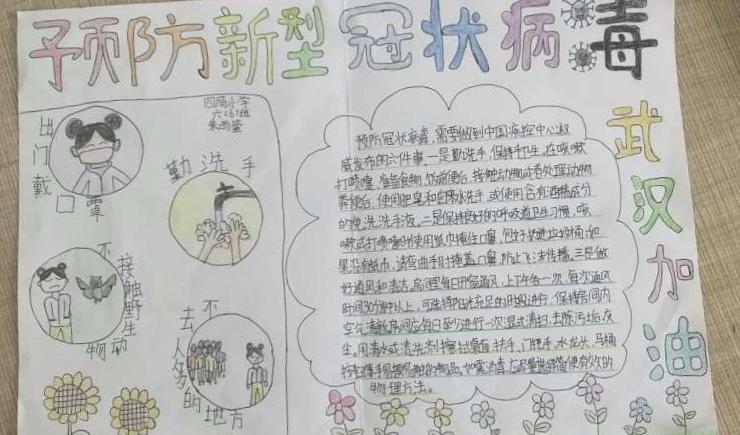 预防新型冠状病毒
武汉加油
六(6)班
出门戴口罩
勤洗手
不接触野生动物
不去人多的地方
预防冠状病毒,需要做到中国疾控中心权
威发布的六件事,一是勤洗手,保持手卫生。在咳嗽
打喷嚏,准备食物,饭前便后,接触动物或者处理动物
粪便后,使用肥皂和自来水洗手,或使用含有酒精成分
的免洗洗手液。二是保持良好的呼吸道卫生习惯,咳
嗽或打喷嚏时使用纸巾掩住口鼻,
果没有纸巾,请弯曲手肘掩盖口鼻,防止飞沫传播。三是做
好通风和清洁,房间里每日开窗通风,上下午各一次,每次通风
时间30分钟以上,可选择阳光充足的时段进行,保持房间内
空气清新,房间每日至少进行一次湿式清扫,去除污垢灰
用清水或清洗剂擦拭桌面,扶手,门把手,水龙头,马桶
物理方法。